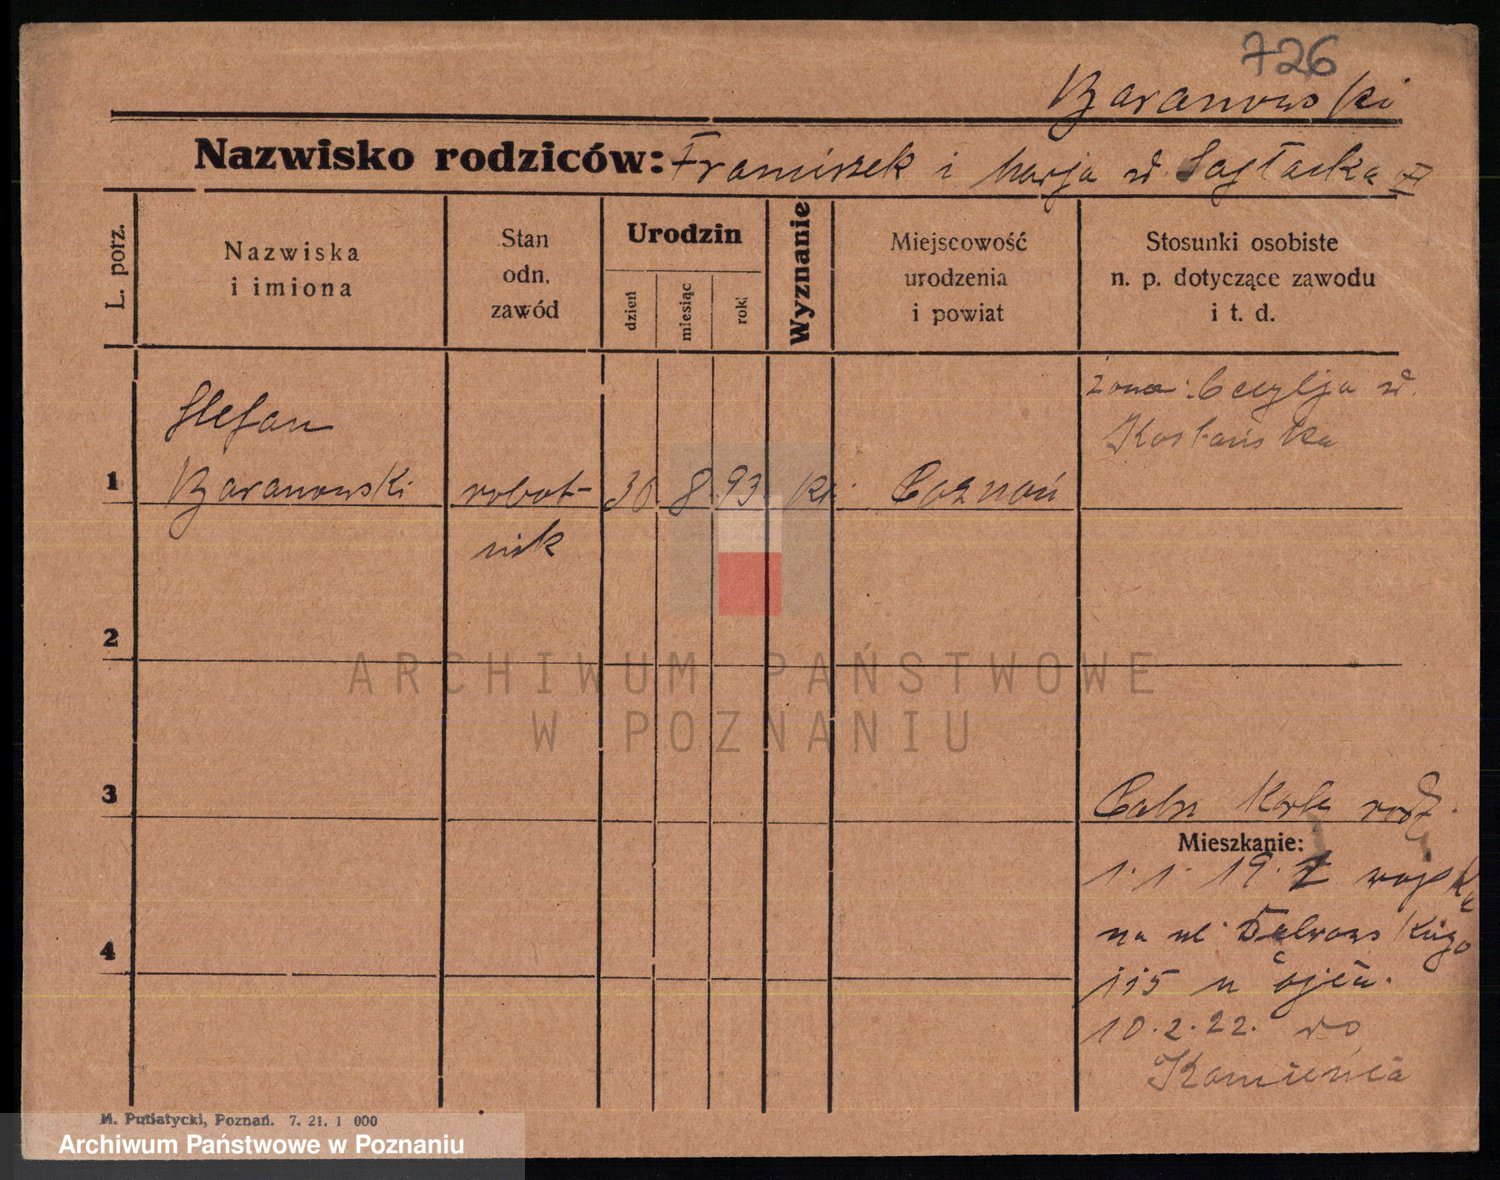 726
Baranowski
Nazwisko rodziców: Franciszek i Marja z d.
L. porz.
Nazwiska
i imiona
Stan
odn.
zawód
Urodzin
dzień
miesiąc
rok
Wyznanie
Miejscowość
urodzenia
i powiat
Stosunki osobiste
n. p. dotyczące zawodu
i t. d.
żona: Cecylja z d.
Stefan
1 Baranowski robot- 30 8 93 kt. Poznań
nik
2
3
Patrz Karta rodz.
Mieszkanie:
1. 1. 19. z wojska
na ul.
115 u ojca.
10. 2. 22. do
Kamieńca
4
M. Putiatycki, Poznań. 7. 21. 1 000
ARCHIWUM PAŃSTWOWE
W POZNANIU
Archiwum Państwowe w Poznaniu